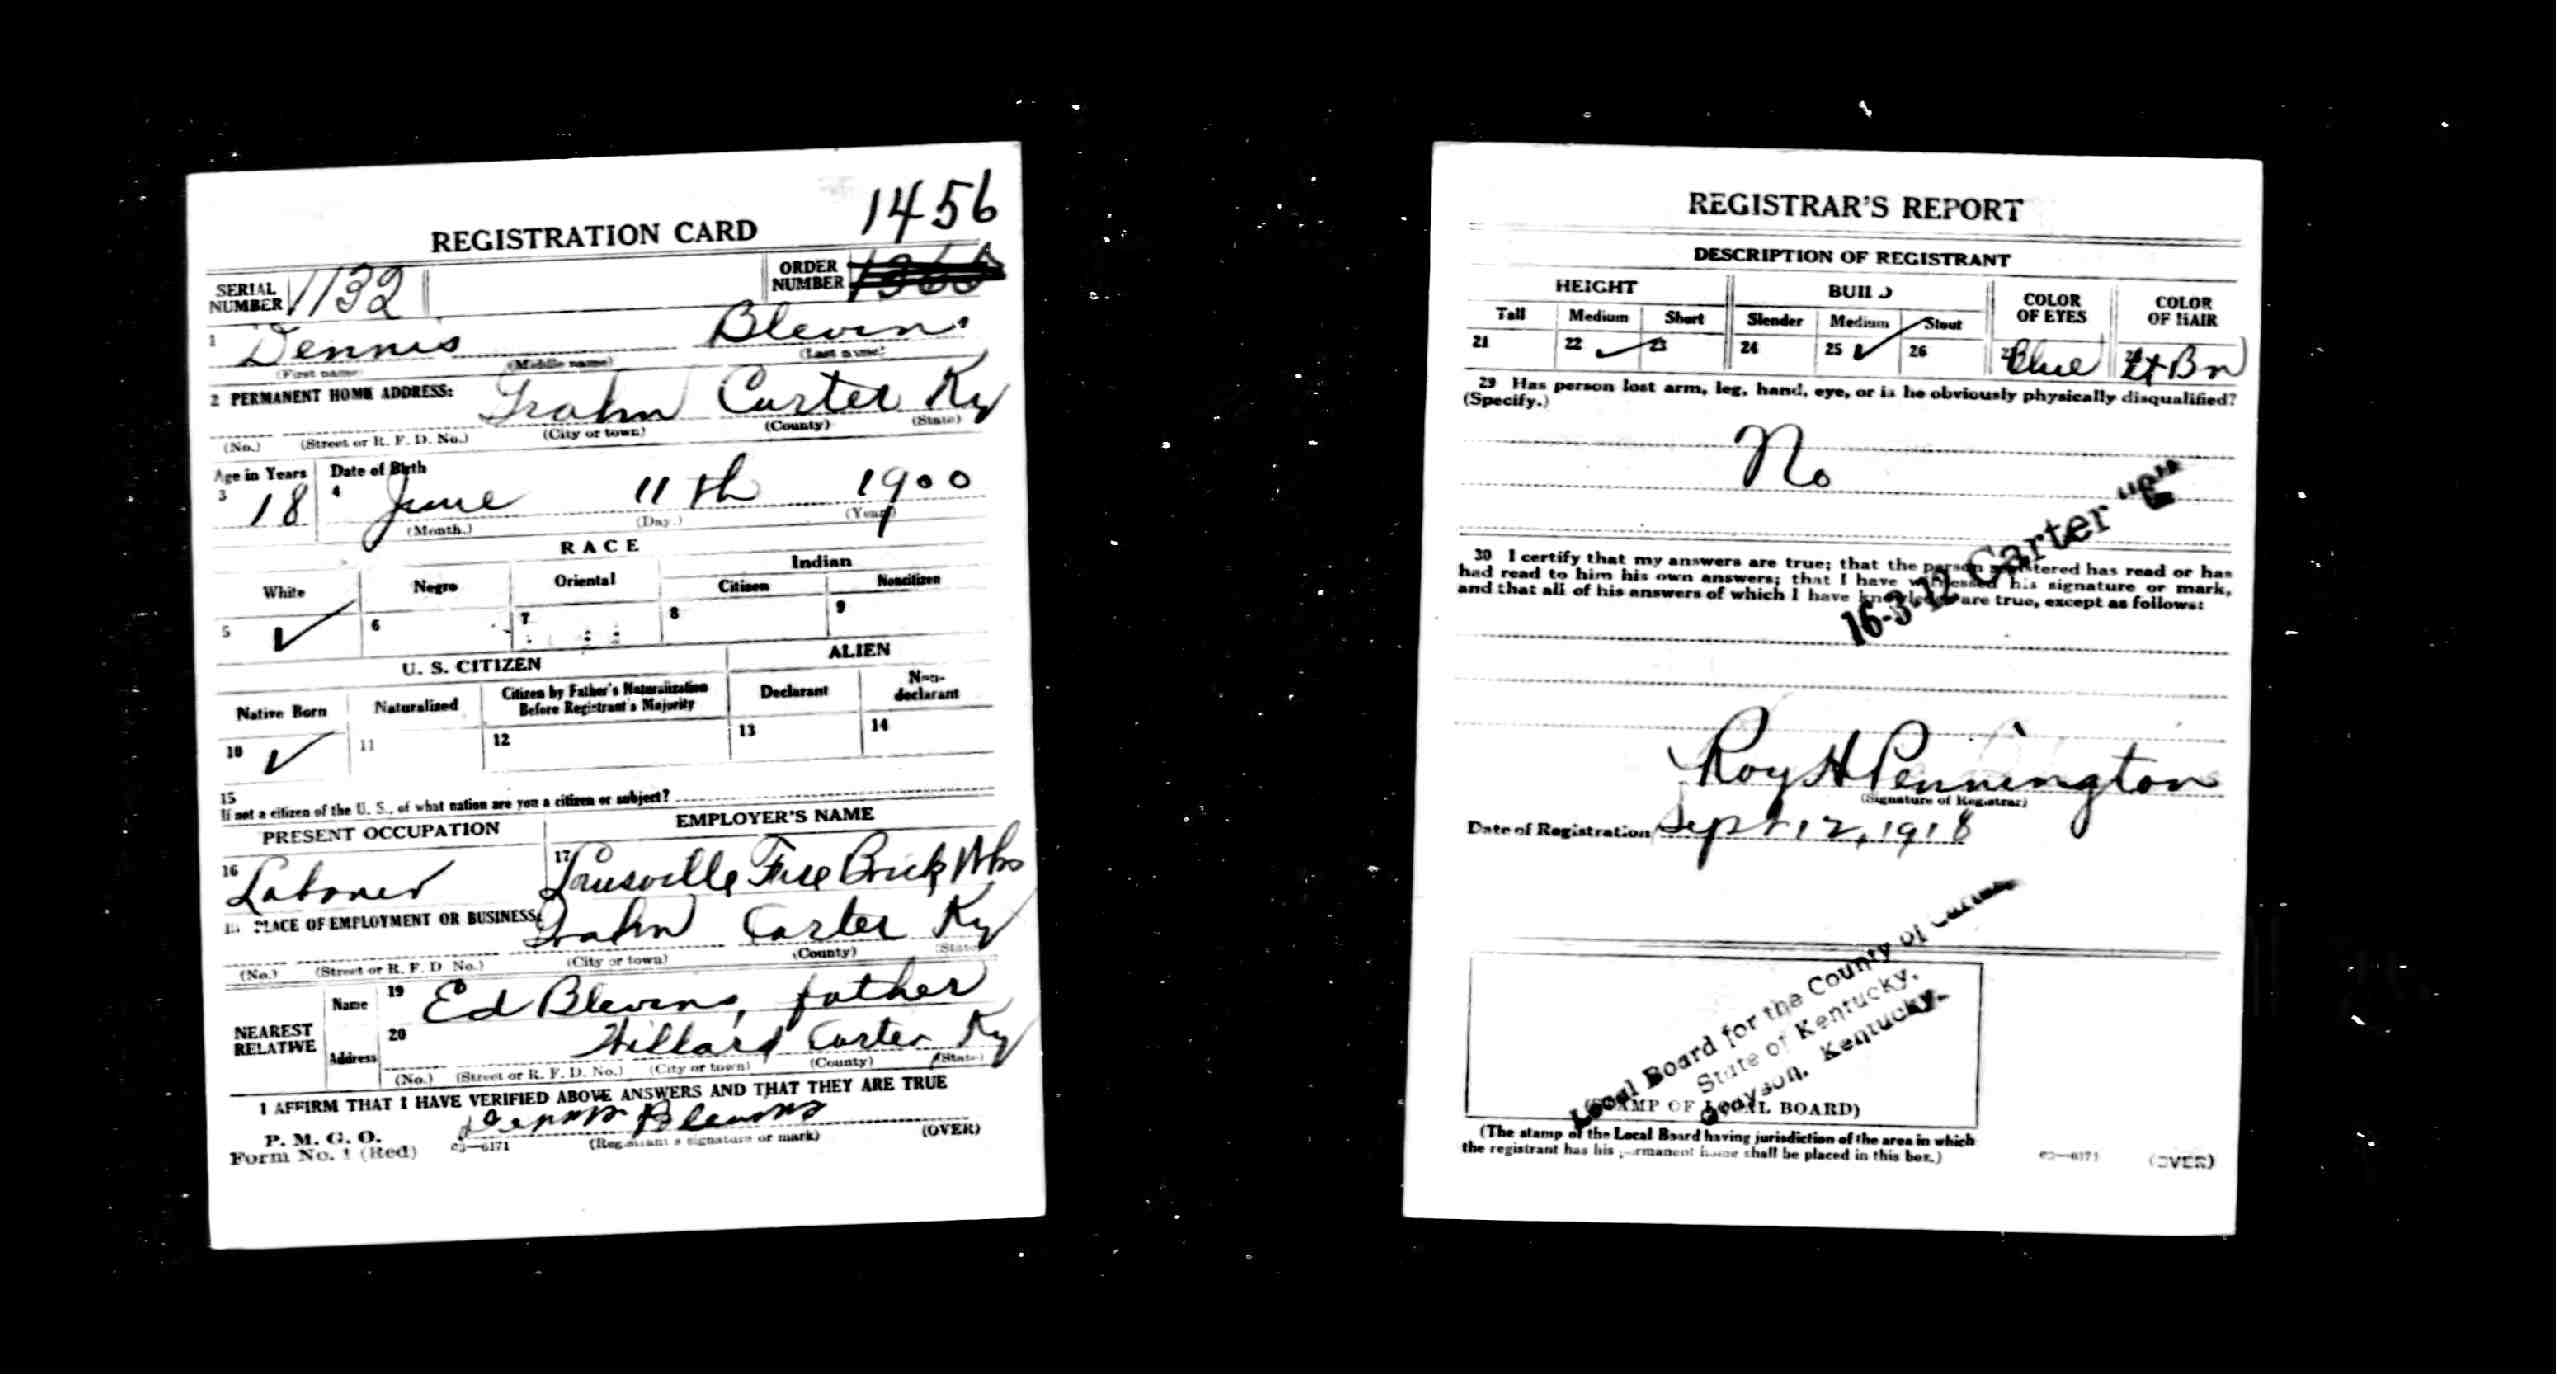 1456
REGISTRATION CARD
SERIAL NUMBER 1132 ORDER NUMBER
1 Dennis Blevins
(First name) (Middle name) (Last name)
2 PERMANENT HOME ADDRESS: Grahn Carter Ky
(No.) (Street or R. F. D. No.) (City or town) (County) (State)
Age in Years Date of Birth
3 18 4 June 11th 1900
(Month.) (Day.) (Year)
RACE
White Negro Oriental Indian
Citizen Noncitizen
5 ✓ 6 7 8 9
U. S. CITIZEN ALIEN
Native Born Naturalized Citizen by Father's Naturalization Before Registrant's Majority Declarant Non-declarant
10 ✓ 11 12 13 14
15
If not a citizen of the U. S., of what nation are you a citizen or subject?
PRESENT OCCUPATION EMPLOYER'S NAME
16 Laborer 17 Louisville Fire Brick Wks
PLACE OF EMPLOYMENT OR BUSINESS: Grahn Carter Ky
(No.) (Street or R. F. D. No.) (City or town) (County) (State)
NEAREST RELATIVE Name 19 Ed Blevins, father
Address 20 Willard Carter Ky
(No.) (Street or R. F. D. No.) (City or town) (County) (State)
I AFFIRM THAT I HAVE VERIFIED ABOVE ANSWERS AND THAT THEY ARE TRUE
P. M. G. O.
Form No. 1 (Red) 03—6171 Dennis Blevins
(Registrant's signature or mark) (OVER)
REGISTRAR'S REPORT
DESCRIPTION OF REGISTRANT
HEIGHT BUILD COLOR OF EYES COLOR OF HAIR
Tall Medium Short Slender Medium Stout
21 22 ✓ 23 24 25 ✓ 26 Blue Lt Bn
29 Has person lost arm, leg, hand, eye, or is he obviously physically disqualified?
(Specify.)
No
30 I certify that my answers are true; that the person registered has read or has
had read to him his own answers; that I have witnessed his signature or mark,
and that all of his answers of which I have knowledge are true, except as follows:
16-3-12 Carter
Roy H Pennington
(Signature of Registrar)
Date of Registration Sept 12, 1918
Local Board for the County of Carter
State of Kentucky.
Grayson, Kentucky.
(STAMP OF LOCAL BOARD)
(The stamp of the Local Board having jurisdiction of the area in which
the registrant has his permanent home shall be placed in this box.)
03—6171 (OVER)